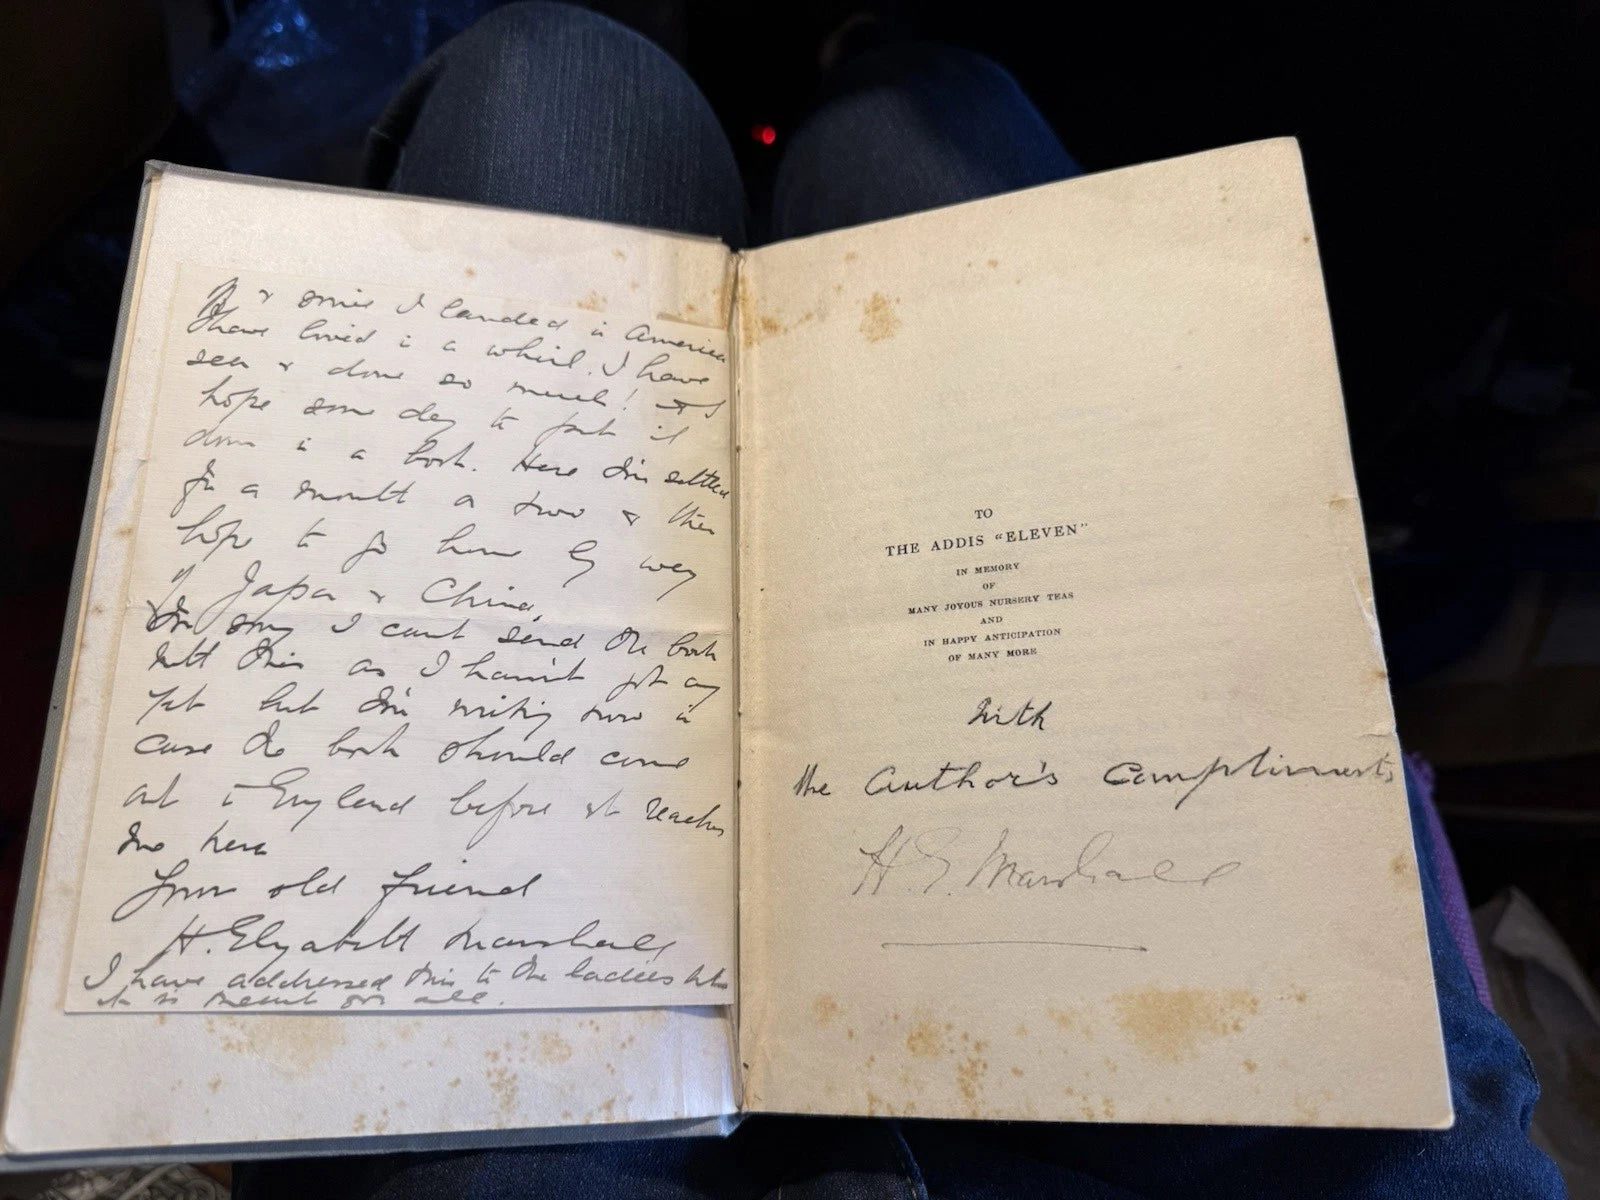 & since I landed in America
I have lived in a whirl. I have
seen & done so much! & I
hope some day to put it
down in a book. Here I'm settled
for a month or two & then
hope to go home by way
of Japan & China.
I'm sorry I cant send the book
with this as I havn't got any
yet but I'm writing now in
case the book should come
out in England before it reaches
me here
Your old friend
H. Elizabeth Marshall
I have addressed this to the ladies but
it is meant for all.
TO
THE ADDIS "ELEVEN"
IN MEMORY
OF
MANY JOYOUS NURSERY TEAS
AND
IN HAPPY ANTICIPATION
OF MANY MORE
with
the Author's Compliments
H. E. Marshall